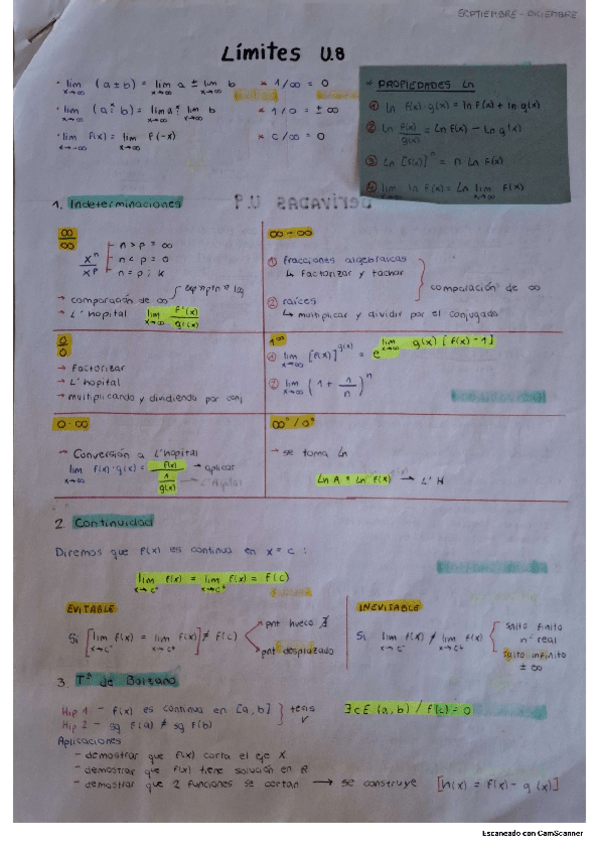 SEPTIEMBRE - DICIEMBRE
Límites U.8
· lim x→∞ (a ± b) = lim x→∞ a ± lim x→∞ b
* 1/∞ = 0
lim x→∞
* 1/0 = ± ∞
· lim x→-∞ f(x) = lim x→∞ f(-x)
* C/∞ = 0
* PROPIEDADES Ln
① ln f(x)·g(x) = ln f(x) + ln g(x)
② ln f(x)/g(x) = ln f(x) - ln g(x)
③ ln [f(x)]^n = n ln f(x)
④ lim x→∞ ln f(x) = Ln lim x→∞ f(x)
DERIVADAS U.9
1. Indeterminaciones
∞/∞
x^n/x^p
n > p = ∞
n < p = 0
n = p ; k
→ comparación de ∞
→ L'hopital lim x→∞ f'(x)/g'(x)
∞ - ∞
① fracciones algebraicas
↳ Factorizar y tachar
② raíces
↳ multiplicar y dividir por el conjugado
comparación de ∞
0/0
→ Factorizar
→ L'hopital
→ multiplicando y dividiendo por conj
1^∞
① lim x→∞ [f(x)]^g(x) = e^lim x→∞ g(x) [f(x) - 1]
② lim n→∞ (1 + 1/n)^n
0 · ∞
→ Conversión a L'hopital
lim x→∞ f(x)·g(x) = f(x) / 1/g(x) → aplicar
→ L'Hopital
∞° / 0°
→ se toma Ln
Ln A = Ln f(x) → L'H
2. Continuidad
Diremos que f(x) es continua en x = c :
lim x→c⁻ f(x) = lim x→c⁺ f(x) = f(c)
EVITABLE
Si [lim x→c⁻ f(x) = lim x→c⁺ f(x)] ≠ f(c)
pnt hueco ∄
pnt desplazado
INEVITABLE
Si lim x→c⁻ f(x) ≠ lim x→c⁺ f(x)
Salto finito
nº real
Salto infinito
± ∞
3. Tª de Bolzano
Hip 1 - f(x) es continua en [a,b]
Hip 2 - sg f(a) ≠ sg f(b)
tesis
∃ c ∈ (a,b) / f(c) = 0
Aplicaciones
- demostrar que f(x) corta el eje X
- demostrar que f(x) tiene solución en R
- demostrar que 2 funciones se cortan → se construye [h(x) = f(x) - g(x)]
Escaneado con CamScanner